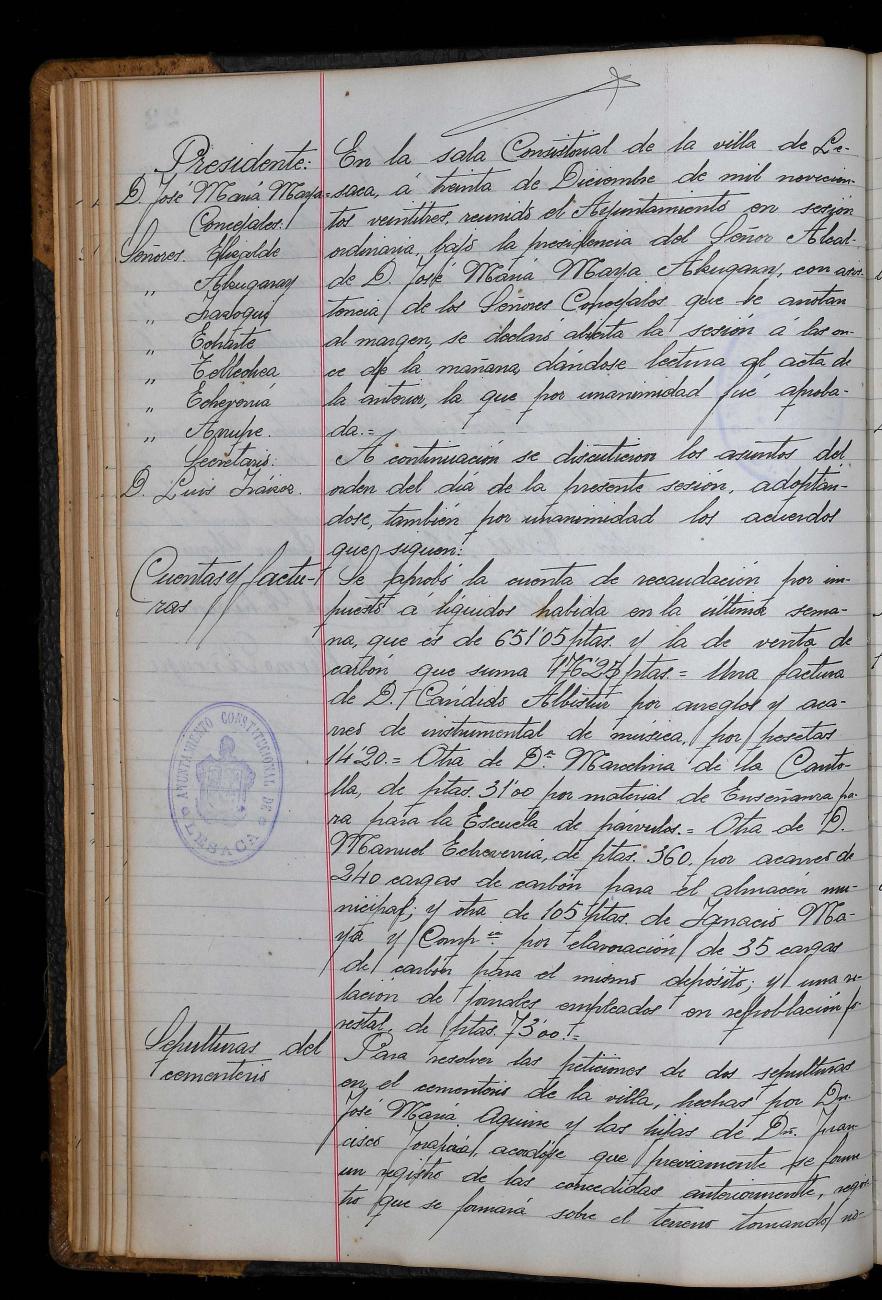 Presidente:
D. José María Maya
Concejales.
Señores. Elizalde
„ Alzugaray
„ Irazoqui
„ Echarte
„ Tellechea
„ Echeverría
„ Arrupe.
Secretario:
D. Luis Iráizoz.
En la sala Consistorial de la villa de Le-
saca, á treinta de Diciembre de mil novecien-
tos veintitres, reunido el Ayuntamiento en sesión
ordinaria, bajo la presidencia del Señor Alcal-
de D. José María Maya Alzugaray, con asis-
tencia de los Señores Concejales que se anotan
al margen, se declaró abierta la sesión á las on-
ce de la mañana, dándose lectura al acta de
la anterior, la que por unanimidad fué aproba-
da.=
A continuación se discutieron los asuntos del
orden del día de la presente sesión, adoptán-
dose, también por unanimidad los acuerdos
que siguen:
Cuentas y factu-
ras
Se aprobó la cuenta de recaudación por im-
puesto á líquidos habida en la última sema-
na, que es de 651'05 ptas. y la de venta de
carbón que suma 476'25 ptas.= Una factura
de D. Cándido Albistur por arreglos y aca-
rreo de instrumental de música, por pesetas
14'20.= Otra de Dª. Marcelina de la Canto-
lla, de ptas. 31'00 por material de Enseñanza pa-
ra para la Escuela de párvulos.= Otra de D.
Manuel Echeverría, de ptas. 360. por acarreo de
240 cargas de carbón para el almacén mu-
nicipal; y otra de 105 ptas. de Ignacio Ma-
ya y Compª. por elavoración de 35 cargas
de carbón para el mismo depósito; y una re-
lación de jornales empleados en repoblación fo-
restal, de ptas. 73'00.=
AYUNTAMIENTO CONSTITUCIONAL DE
LESACA
Sepulturas del
cementerio
Para resolver las peticiones de dos sepulturas
en el cementerio de la villa, hechas por Dn.
José María Aguirre y las hijas de Dn. Fran-
cisco acordóse que previamente se forme
un registro de las concedidas anteriormente, regis-
tro que se formará sobre el terreno tomando no-